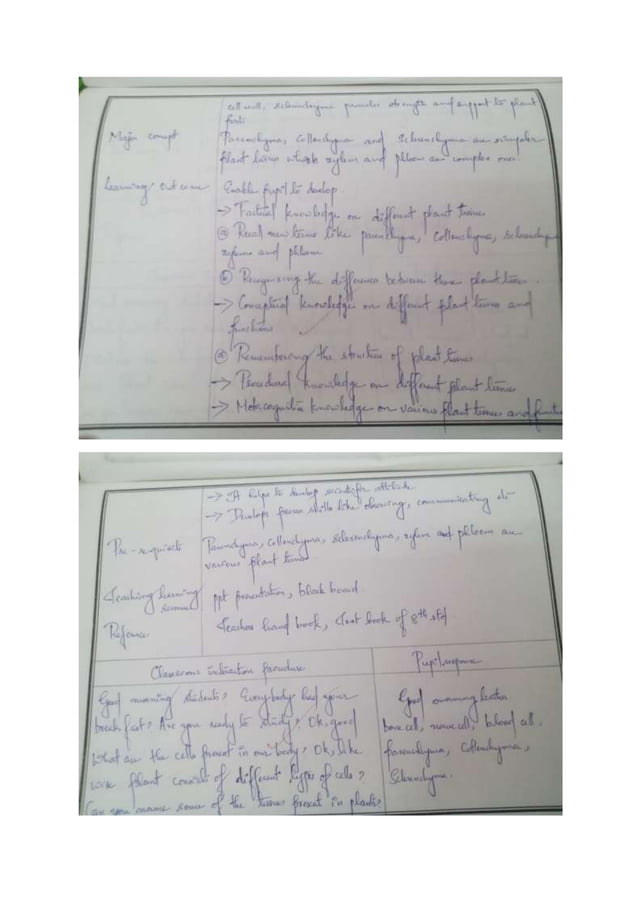 cell wall, sclerenchyma provides strength and support to plant
parts
Major concept
Parenchyma, Collenchyma and Sclerenchyma are simpler
plant tissues whereas xylem and phloem are complex ones.
Learning Outcome
Enable pupil to develop.
→ Factual knowledge on different plant tissues
ⓐ Recall new terms like parenchyma, Collenchyma, sclerenchyma
xylem and phloem
ⓑ Recognising the difference between these plant tissues.
→ Conceptual knowledge on different plant tissues and
functions
ⓐ Remembering the structure of plant tissues
→ Procedural knowledge on different plant tissues
→ Metacognitive knowledge on various plant tissues and
→ It helps to develop scientific attitude.
→ Develops process skills like observing, communicating etc
Pre-requisite
Parenchyma, Collenchyma, sclerenchyma, xylem and phloem are
various plant tissues
Teaching learning
resource
ppt presentation, black board.
Reference
Teachers hand book, Text book of 8th std
Classroom interaction procedure
Pupil response
Good morning students? Everybody had your
break fast? Are you ready to study? Ok, good
What are the cells present in our body? Ok, like
wise plant consists of different types of cells?
Can you name some of the tissues present in plants?
Good morning teacher
bone cell, nerve cell, blood cell.
Parenchyma, Collenchyma,
Sclerenchyma.